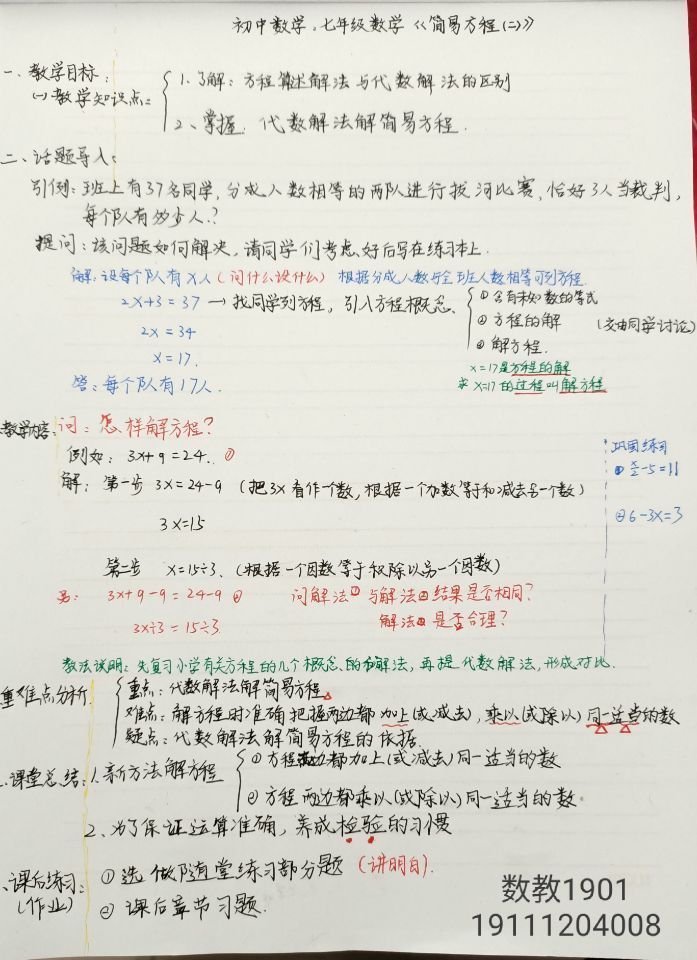 初中数学。七年级数学《简易方程(二)》
一、教学目标:
(一)教学知识点:
1、了解:方程算述解法与代数解法的区别
2、掌握 代数解法解简易方程.
二、话题导入:
引例:班上有37名同学,分成人数相等的两队进行拔河比赛,恰好3人当裁判,
每个队有多少人?
提问:该问题如何解决,请同学们考虑好后写在练习本上.
解:设每个队有x人(问什么设什么) 根据分成人数与全班人数相等可列方程.
2x+3=37 → 找同学列方程,引入方程概念.
① 含有未知数的等式
② 方程的解
③ 解方程.
(交由同学讨论)
2x=34
x=17.
x=17是方程的解
求x=17的过程叫解方程
答:每个队有17人.
教学内容:问:怎样解方程?
例如: 3x+9=24. ①
解:第一步 3x=24-9 (把3x看作一个数,根据一个加数等于和减去另一个数)
3x=15
第二步 x=15÷3. (根据一个因数等于积除以另一个因数)
另: 3x+9-9=24-9 ② 问解法①与解法②结果是否相同?
3x÷3=15÷3. 解法②是否合理?
巩固练习
① x/2-5=11
② 6-3x=3
教法说明:先复习小学有关方程的几个概念的和解法,再提代数解法,形成对比.
重难点分析
重点:代数解法解简易方程
难点:解方程时准确把握两边都加上(或减去),乘以(或除以)同一适当的数
疑点:代数解法解简易方程的依据.
课堂总结:1.新方法解方程
① 方程两边都加上(或减去)同一适当的数
② 方程两边都乘以(或除以)同一适当的数
2、为了保证运算准确,养成检验的习惯
课后练习:
(作业)
① 选做随堂练习部分题 (讲明白).
② 课后章节习题.
数教1901
19111204008